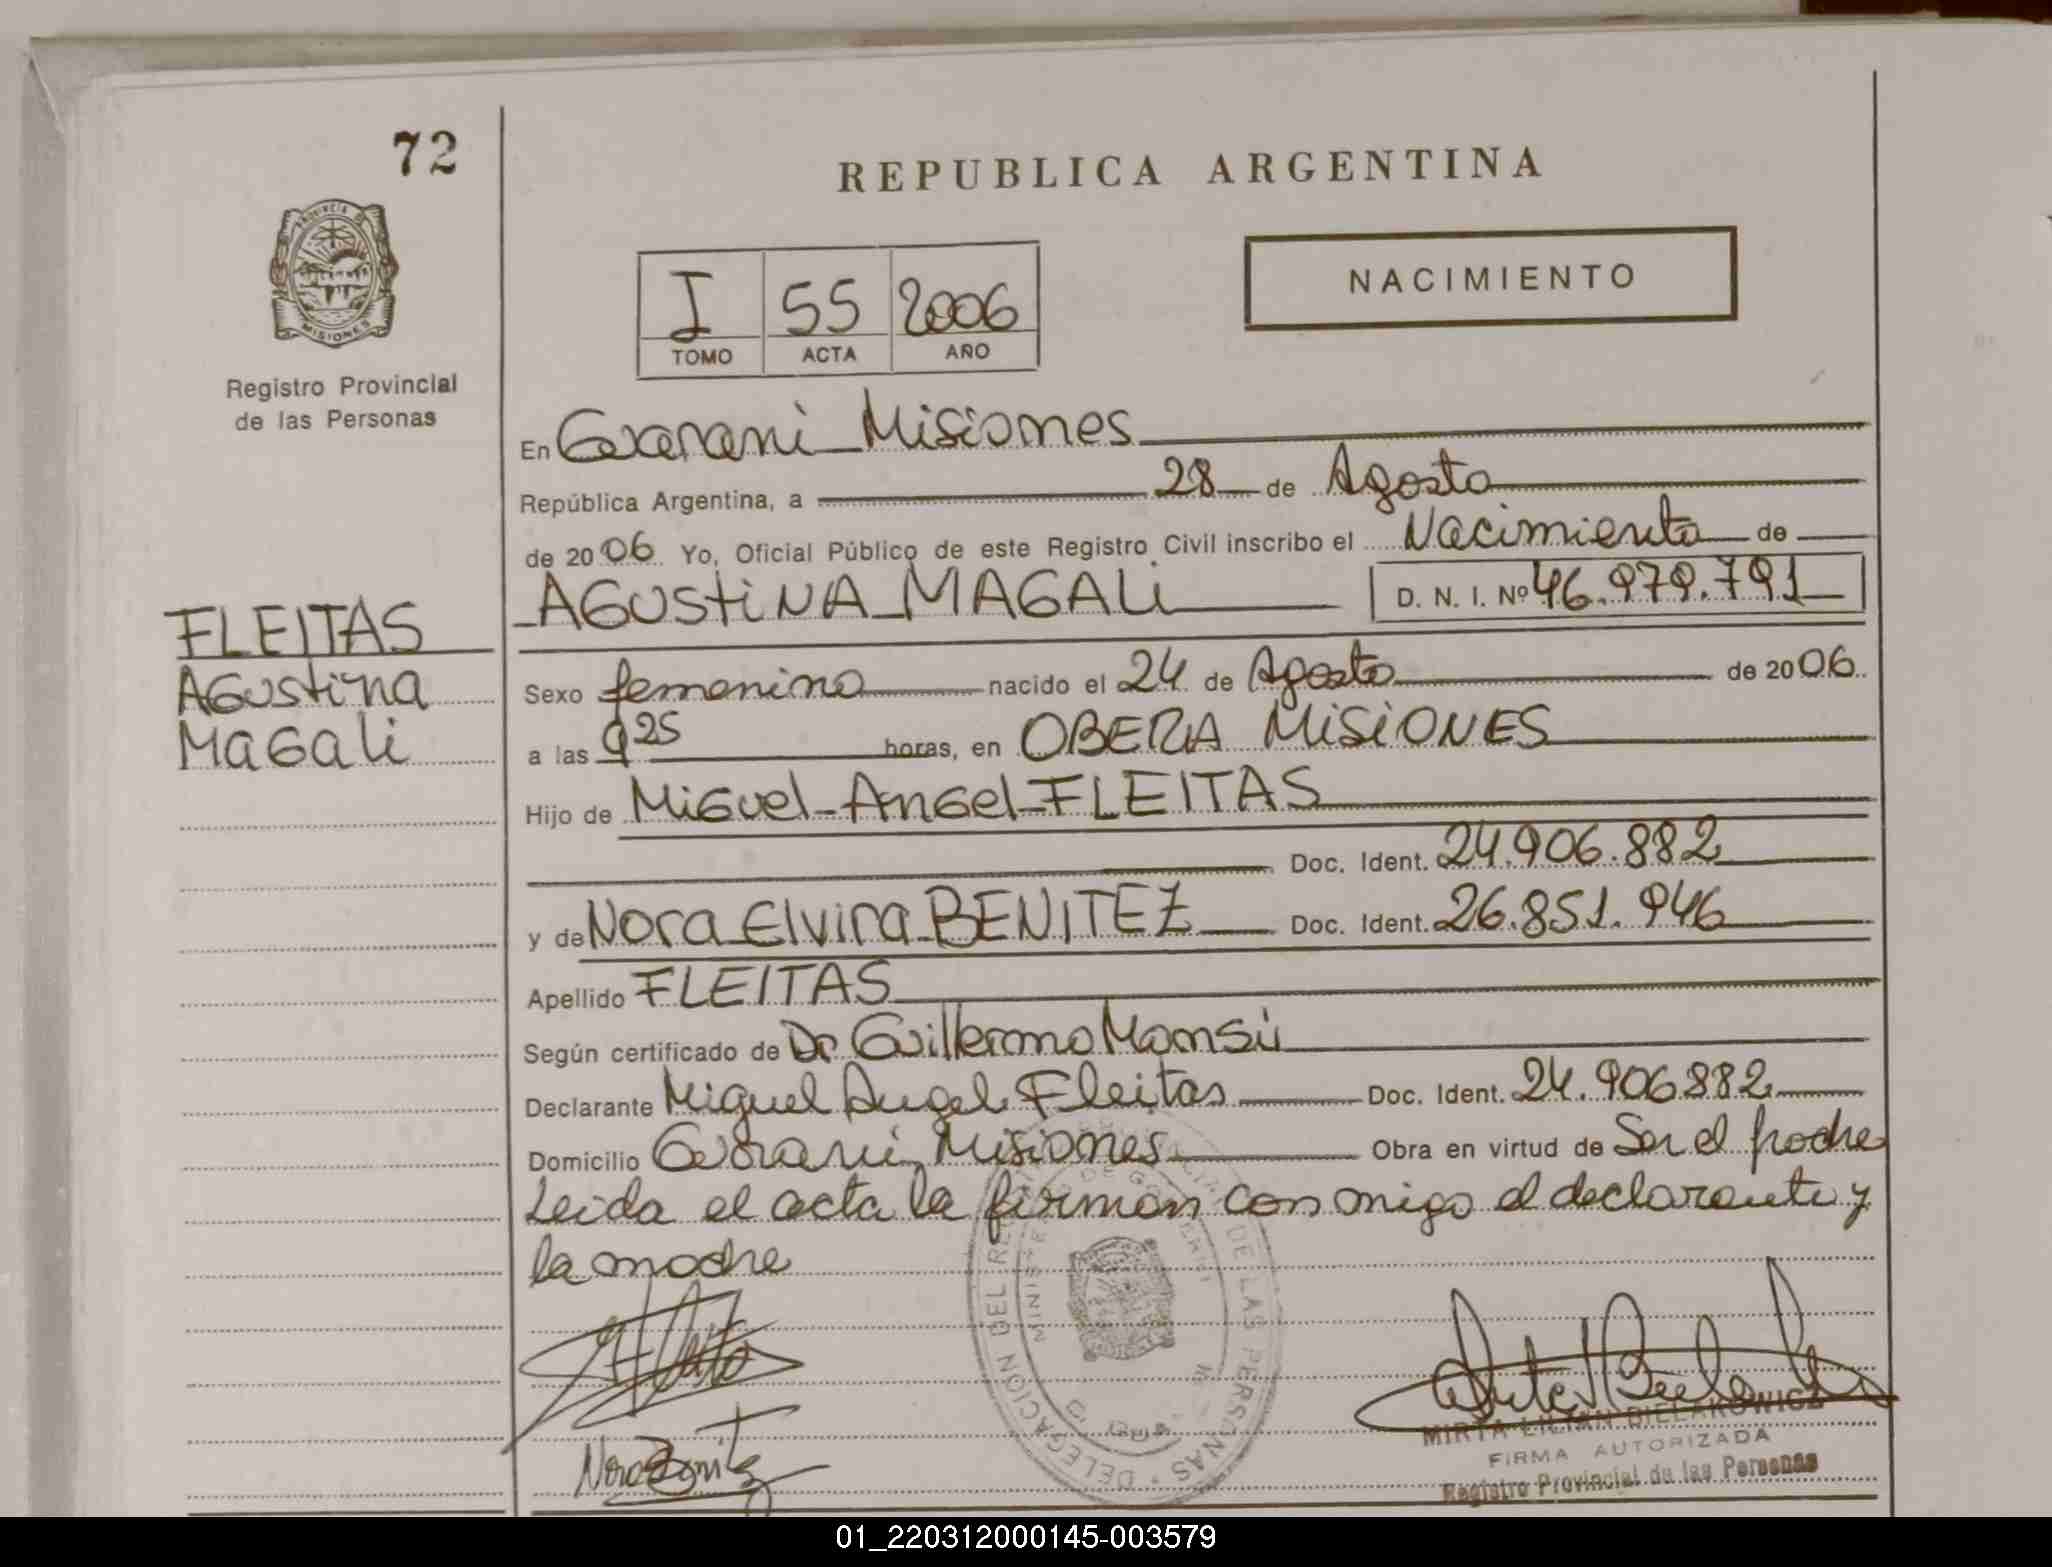 72
REPUBLICA ARGENTINA
PROVINCIA DE
MISIONES
NACIMIENTO
I 55 2006
TOMO ACTA AÑO
Registro Provincial
de las Personas
En Guarani Misiones
República Argentina, a 28 de Agosto
de 2006 Yo, Oficial Público de este Registro Civil inscribo el Nacimiento de
AGUSTINA MAGALI D. N. I. Nº 46.979.791
FLEITAS
Agustina
Magali
Sexo femenino nacido el 24 de Agosto de 2006
a las 9 25 horas, en OBERA MISIONES
Hijo de Miguel Angel FLEITAS
Doc. Ident. 24.906.882
y de Nora Elvira BENITEZ Doc. Ident. 26.851.946
Apellido FLEITAS
Según certificado de Dr Guillermo Mansú
Declarante Miguel Angel Fleitas Doc. Ident. 24.906882
Domicilio Guarani Misiones Obra en virtud de Ser el padre
Leida el acta la firman conmigo el declarante y
la madre
DELEGACION DEL DE LAS PERSONAS
Nora Benitez
MIRTA LILIAN BIELAKOWICZ
FIRMA AUTORIZADA
Registro Provincial de las Personas
01_220312000145-003579